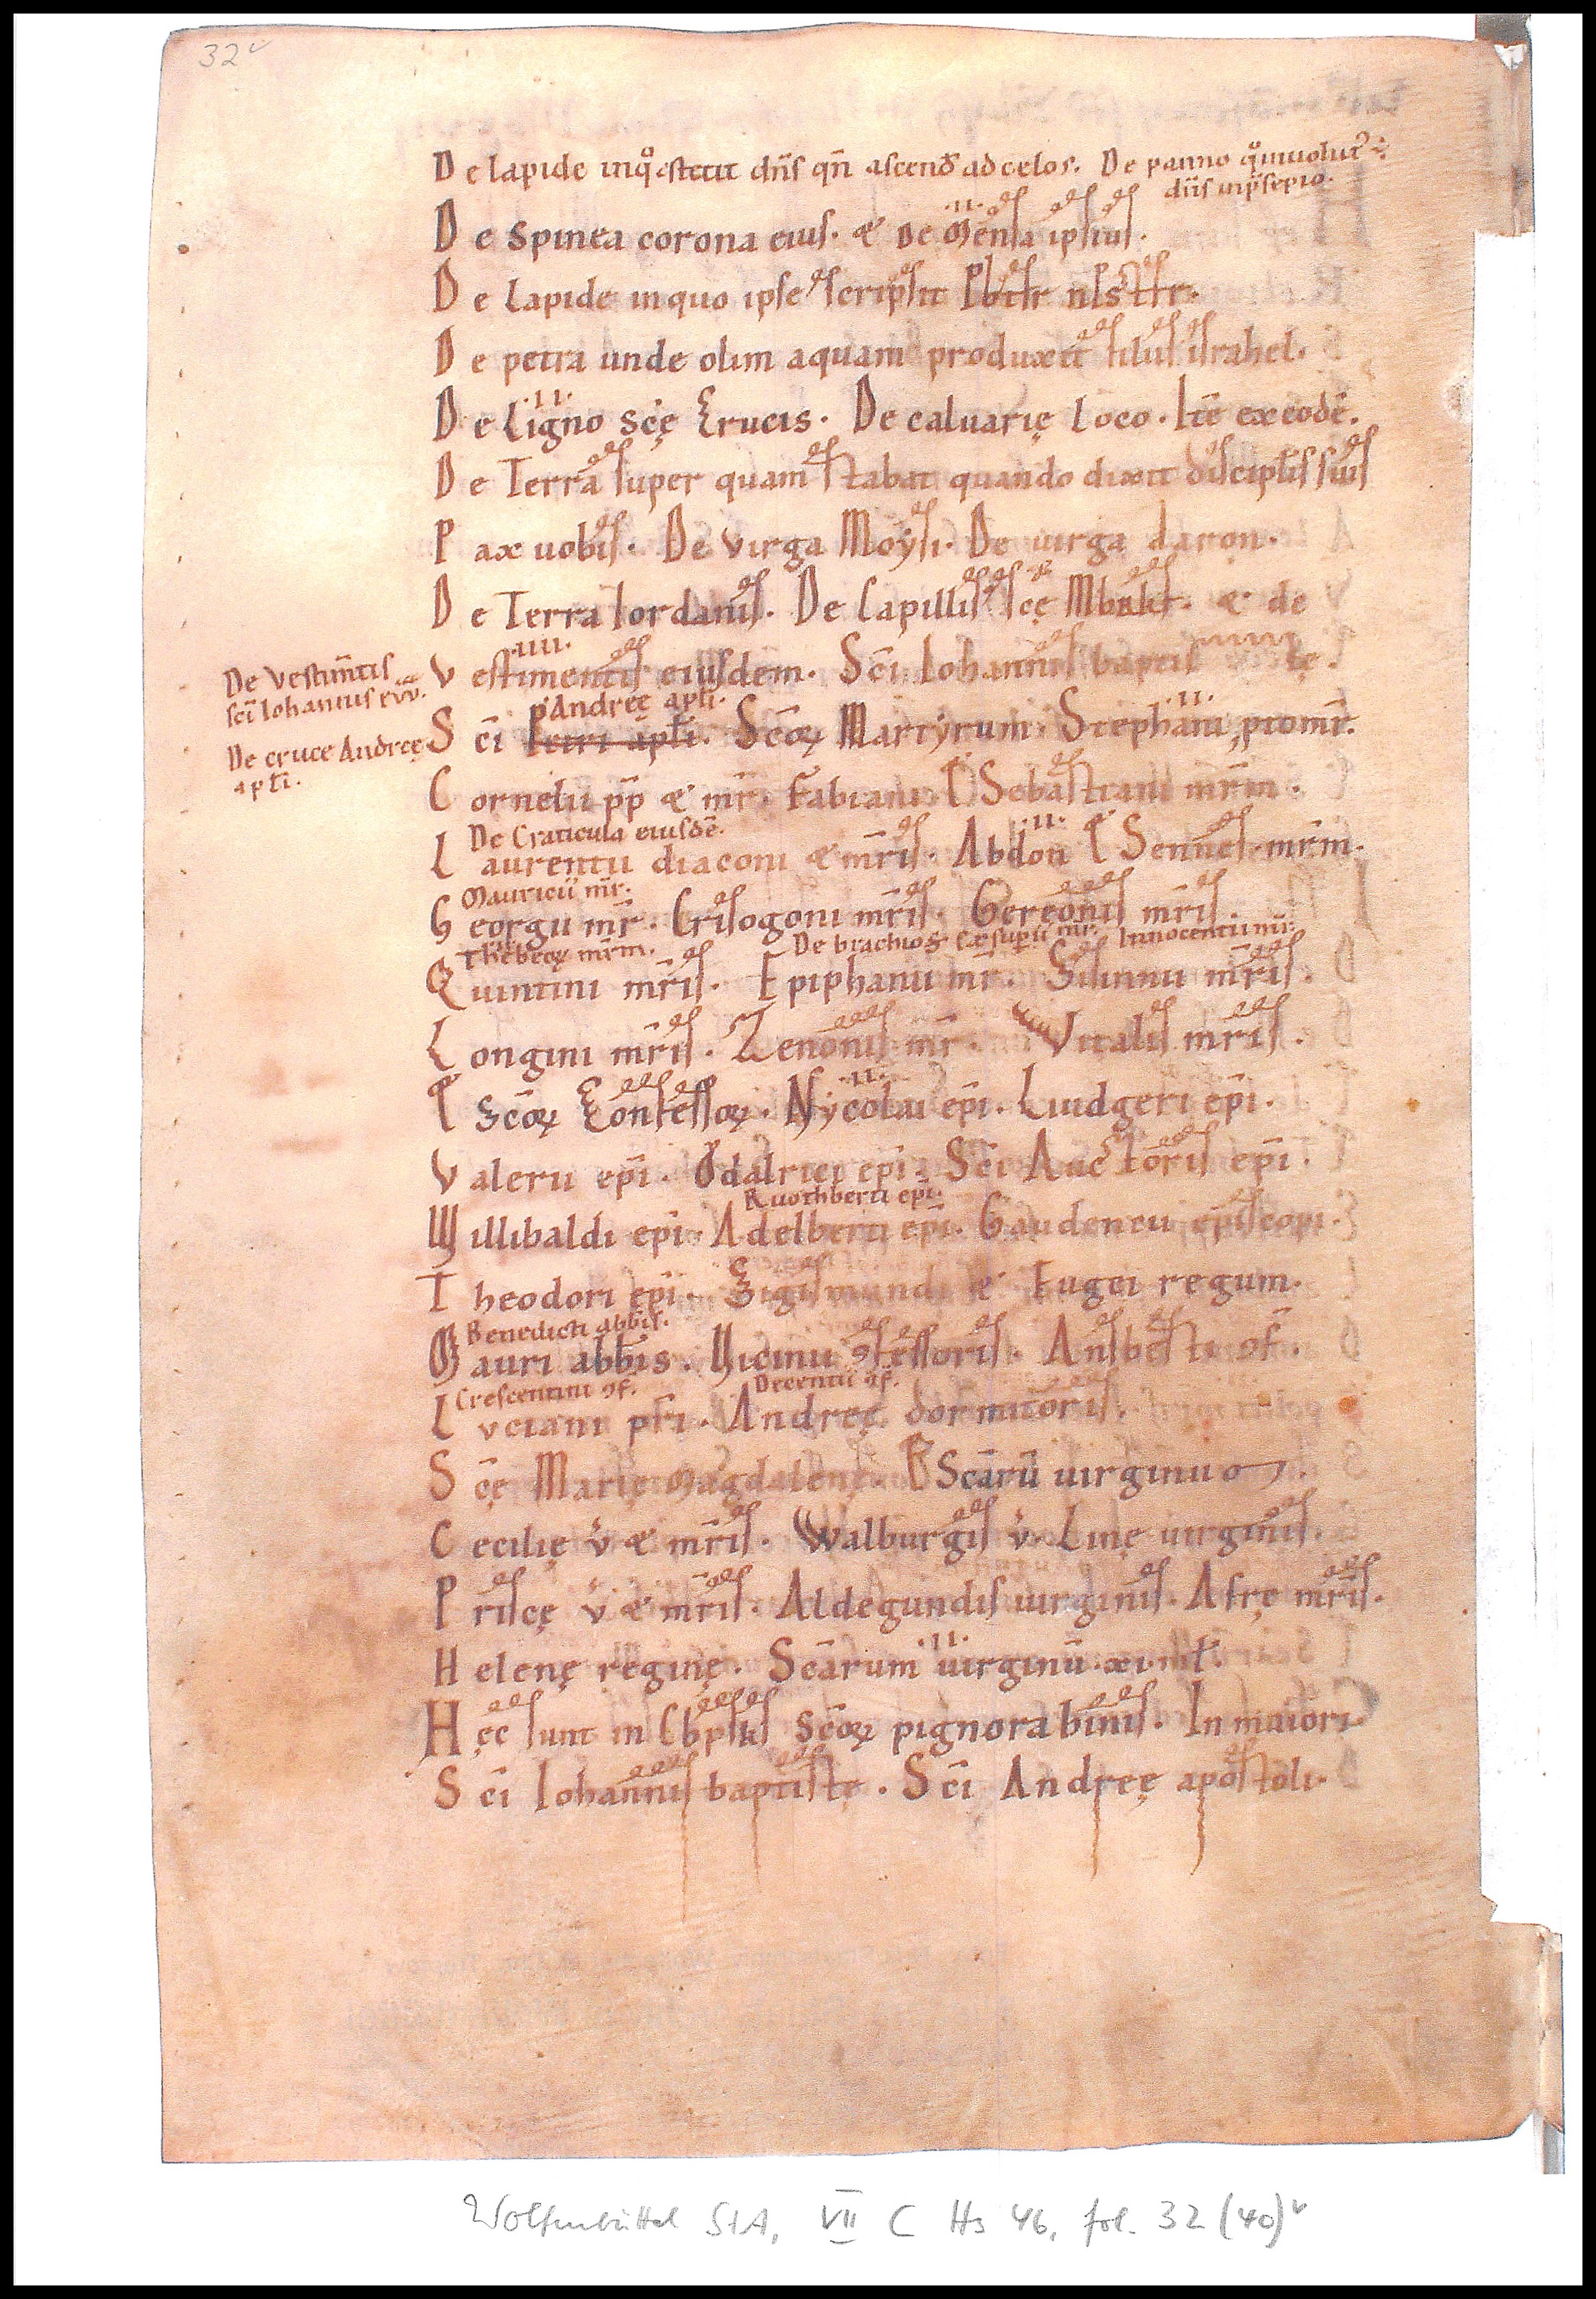 32v
De lapide in qͦ stetit dn̄s qn̄ ascend̄ ad celos. De panno qͦ inuolut᷒ ÷
dn̄s in p̄sepio.
.II.
De Spinea corona eius. & De Mensa ipsius.
De Lapide in quo ipse scripsit Pbtfr nPsttr.
De petra unde olim aquam produxit filiis israhel.
.II.
De Ligno Scę Crucis. De caluarię Loco. Itē ex eodē.
De Terra super quam stabat quando dixit discipl̄is suis
Pax uobis. De Virga Moysi. De uirga Aaron.
De Terra Iordanis. De Capillis scę Mbrkę. & de
.IIII.
Vestimentis eiusdem. Sc̄i Iohannis baptistę.
De Vestim̄tis
sc̄i Iohannis evv̄.
Andreę apl̄i.
Sc̄i Petri apl̄i. Sc̄oꝝ Martyrum. Stephani ptom̄r.
.II.
De cruce Andreę
apl̄i.
Cornelii pp̄ & m̄r. Fabiani & Sebastiani m̄rm.
De Craticula eiusdē.
.II.
Laurentii diaconi & m̄ris. Abdon & Sennes. m̄rm.
Mauricii m̄r.
Georgii m̄r. Crisogoni m̄ris. Gereonis m̄ris.
Thebeoꝝ m̄rm.
De brachio S Exsuperii m̄r. Innocentii m̄r.
Quintini m̄ris. Epiphanii m̄r. Sisinnii m̄ris.
Longini m̄ris. Zenonis m̄r. Vitalis m̄ris.
.II.
& Sc̄oꝝ Confessoꝝ. Nycolai ep̄i. Liudgeri ep̄i.
Valerii ep̄i. Odalrici ep̄i. Sc̄i Auctoris ep̄i.
Ruothberti ep̄i.
Willibaldi ep̄i. Adelberti ep̄i. Gaudencii episcopi.
Theodori ep̄i. Sigismundi & Eugei regum.
Benedicti abb̄is.
Mauri abb̄is. Hicinii ꝯfessoris. Ansberti ꝯf.
Crescentini ꝯf.
Decentii ꝯf.
Luciani pr̄i. Andreę dormitoris.
Sc̄ę Marię Magdalenę. & Sc̄arū uirginū
Cecilię v̄ & m̄ris. Walburgis v̄. Linę uirginis.
Priscę v̄ & m̄ris. Aldegundis uirginis. Afrę m̄ris.
.II.
Helenę reginę. Sc̄arum uirginū. xi. mł.
Hęc sunt in Cbpsks Sc̄oꝝ pignora binis. In maiori
Sc̄i Iohannis baptistę. Sc̄i Andreę apostoli.
Wolfenbüttel StA, VII C Hs 46, fol. 32 (40)v